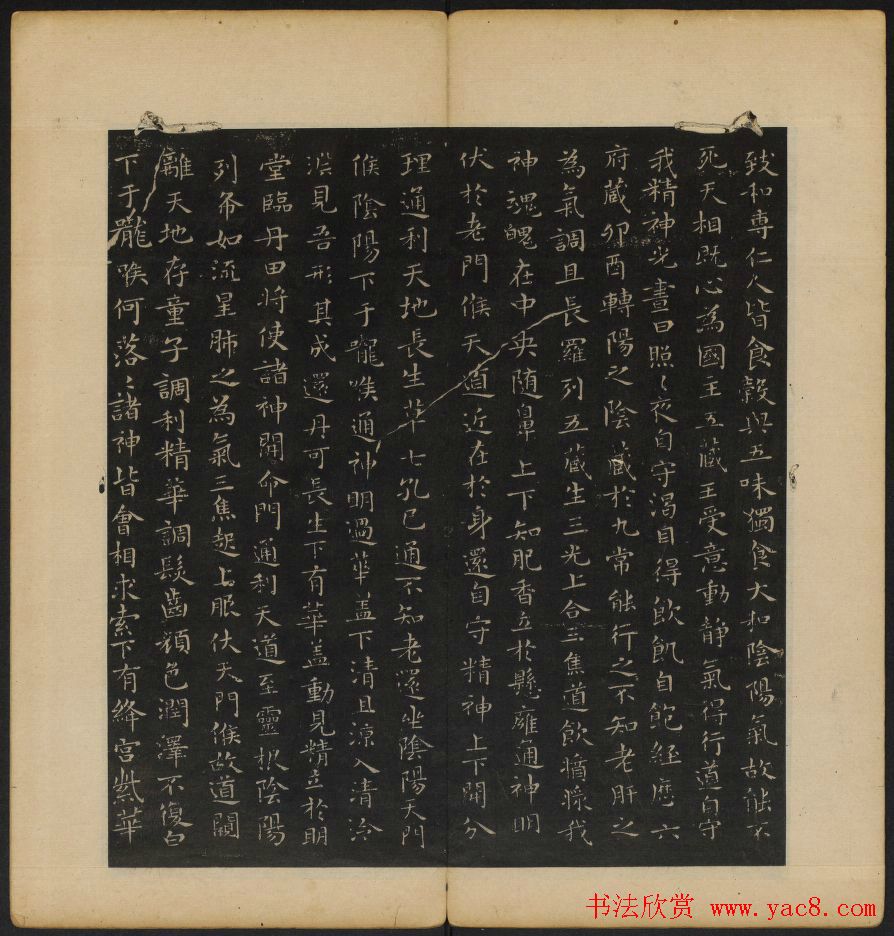 致和專仁人皆食穀與五味獨食大和陰陽氣故能不
死天相既心為國王五藏王受意動静氣得行道自守
我精神光晝日照〻夜自守渴自得飲飢自飽経歷六
府藏卯酉轉陽之陰藏於九常能行之不知老肝之
為氣調且長羅列五藏生三光上合三焦道飲漿我
神魂魄在中央随鼻上下知肥香立於懸雍通神明
伏於老門候天道近在於身還自守精神上下開分
理通利天地長生草七孔已通不知老還坐陰陽天門
候陰陽下于嚨喉通神明過華盖下清且凉入清泠
淵見吾形其成還丹可長生下有華盖動見精立於明
堂臨丹田将使諸神開命門通利天道至靈根陰陽
列布如流星肺之為氣三焦起上服伏天門候故道闚
離天地存童子調利精華調髮齒顔色潤澤不復白
下于嚨喉何落〻諸神皆會相求索下有絳宫紫華
书法欣赏 www.yac8.com